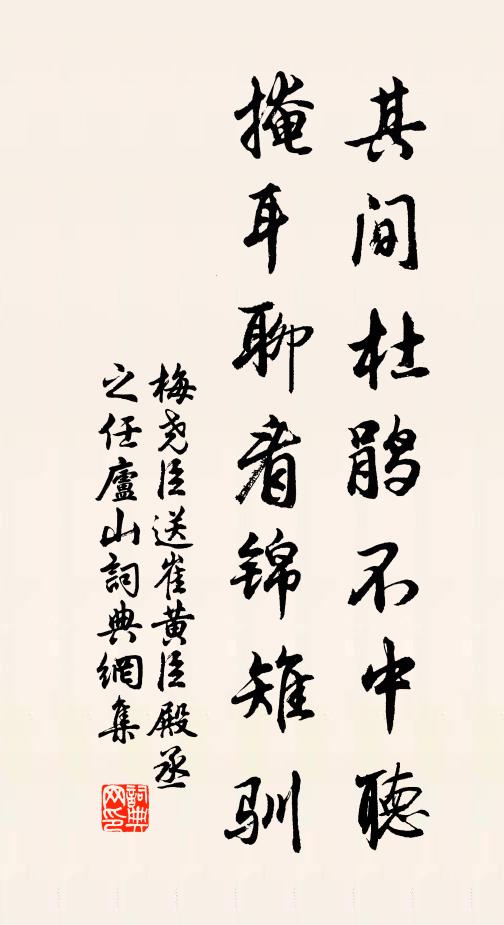 其间杜鹃不中聴
掩耳聊看锦雉驯
梅尧臣送崔黄臣殿丞
之任廬山詞典網集
詞典
网印